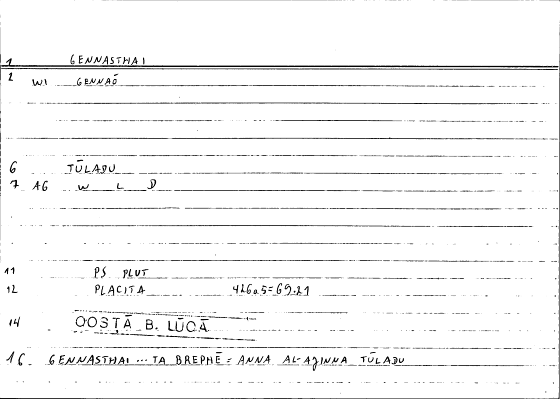 1 GENNASTHAI
2 WI GENNAŌ
6 TŪLADU
7 AG W L D
11 PS PLUT
12 PLACITA 426a5=69.21
14 QOSṬĀ B. LŪQĀ
16 GENNASTHAI ... TA BREPHĒ = ANNA AL-AǦINNA TŪLADU